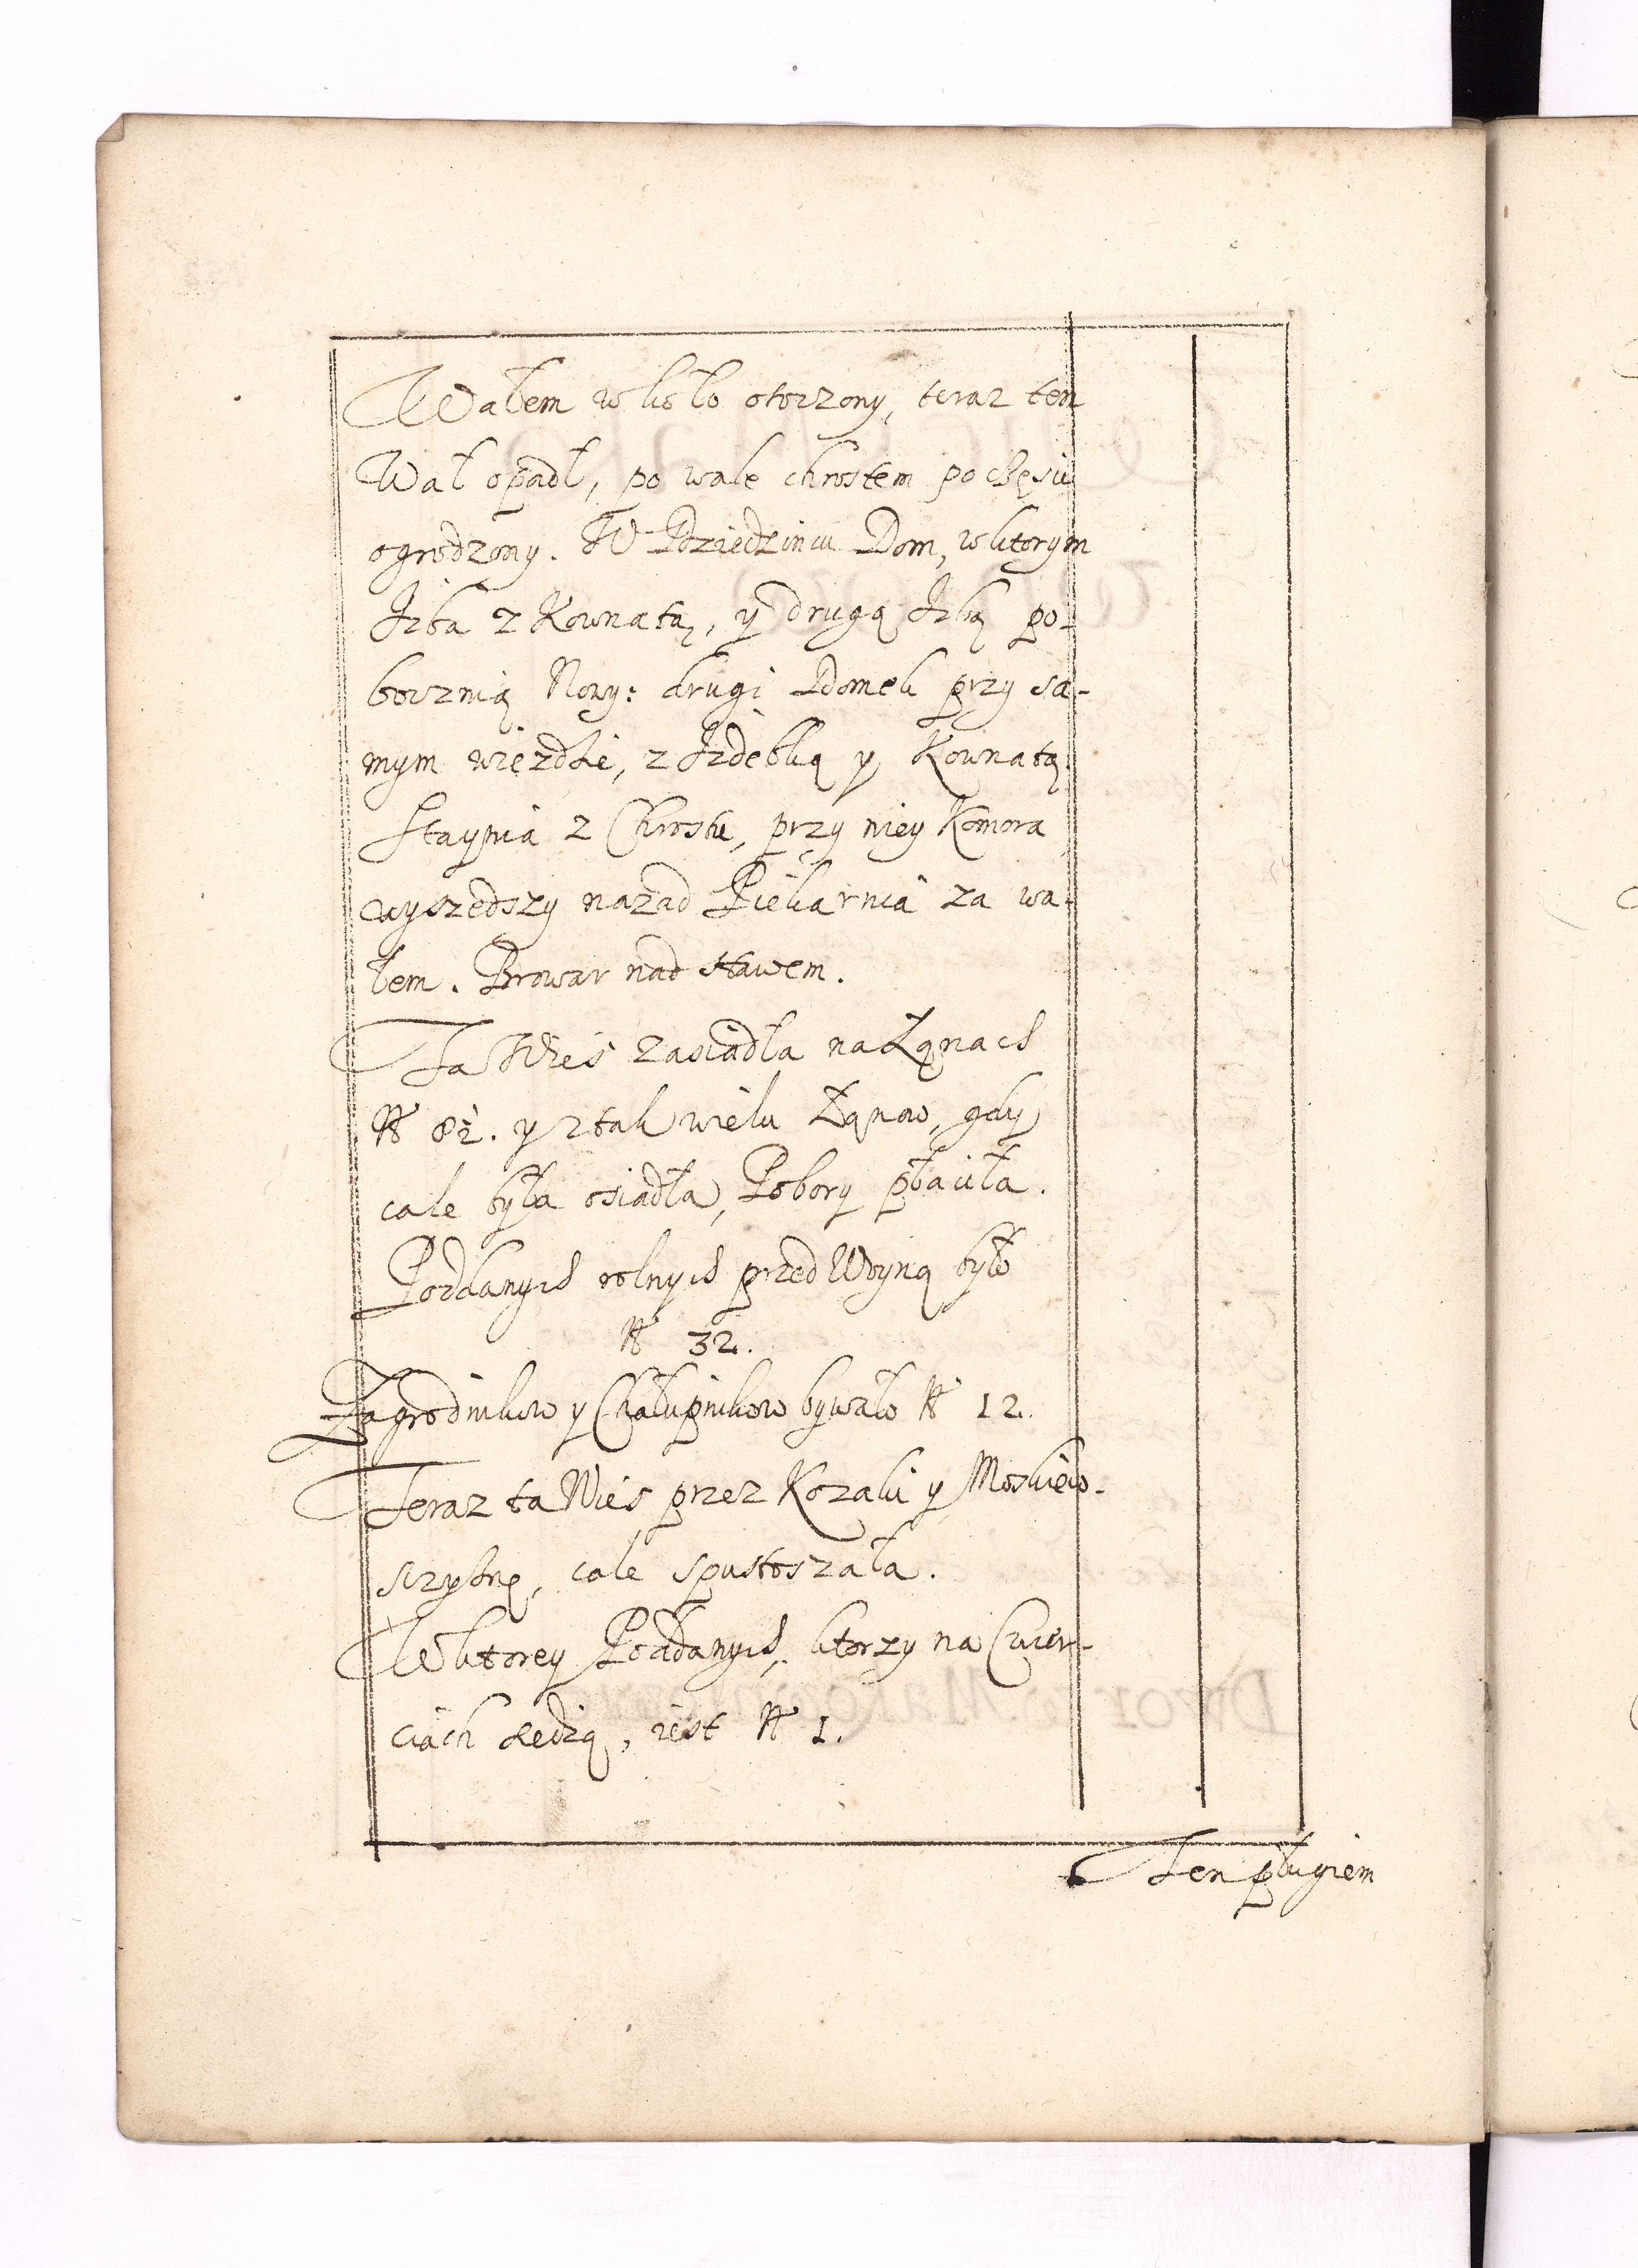 Wałem w koło otoczony, teraz ten
Wał opadł, po wale chrostem po części
ogrodzony. W Dziedzincu Dom, w ktorym
Izba z Kownatą, y drugą Izbą po-
boczną Nowy: drugi Domek przy sa-
mym wieździe, z Izdebką y Kownatą.
Staynia z Chrostu, przy niey Komora
wyszedszy nazad Piekarnia za wa-
łem. Browar nad stawem.
Ta Wieś zasiadła na Łąnach
N 82. y z tak wielu Łąnow, gdy
cale była osiadła, Pobory płaciła.
Poddanych rolnych przed Woyną było
N 32.
Zagrodnikow y Chałupnikow bywało N 12.
Teraz ta Wieś przez Kozaki y Moskiew-
sczyznę, cale spustoszała.
W ktorey Poddanych, ktorzy na Cwier-
ciach siedzą, iest N 1.
Ten pługiem